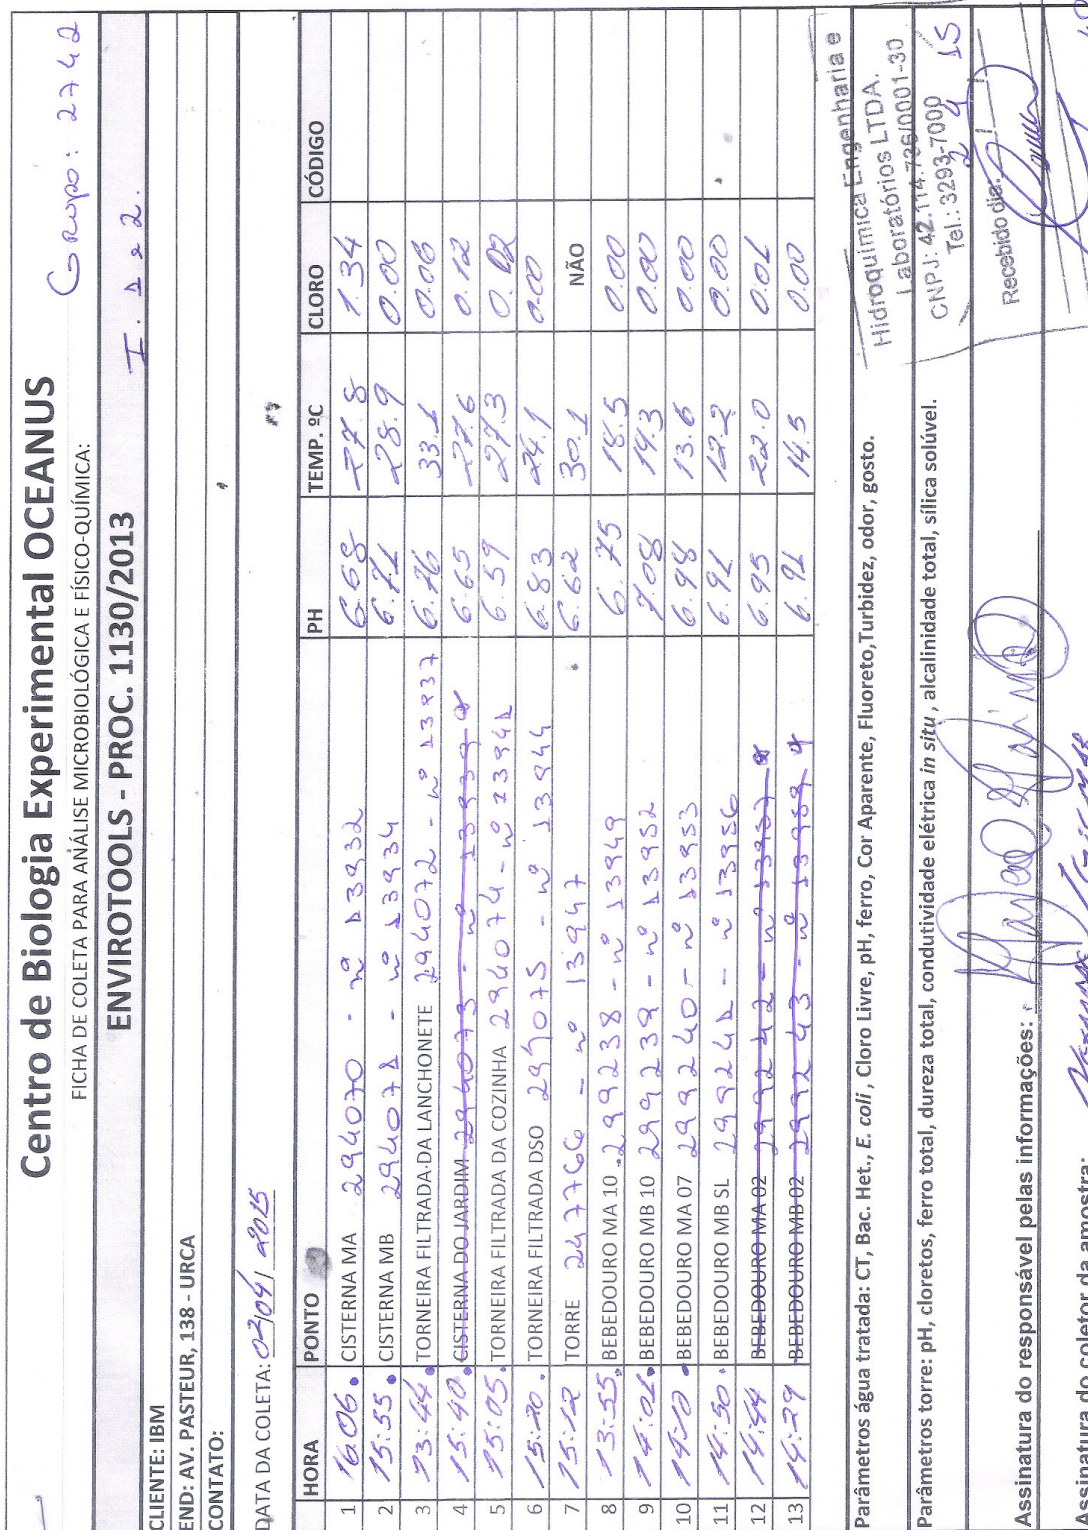 Grupo: 2742
Centro de Biologia Experimental OCEANUS
FICHA DE COLETA PARA ANÁLISE MICROBIOLÓGICA E FÍSICO-QUÍMICA:
ENVIROTOOLS - PROC. 1130/2013
CLIENTE: IBM
END: AV. PASTEUR, 138 - URCA
CONTATO:
DATA DA COLETA: 02/04/2015
HORA PONTO PH TEMP. ºC CLORO CÓDIGO
1 16:06 CISTERNA MA 294070 - nº 13932 6.68 27.8 1.34
2 15:55 CISTERNA MB 294071 - nº 13934 6.71 28.9 0.00
3 13:44 TORNEIRA FILTRADA DA LANCHONETE 294072 - nº 13937 6.76 33.1 0.06
4 15:40 CISTERNA DO JARDIM 294073 - nº 13939 6.65 27.6 0.12
5 15:05 TORNEIRA FILTRADA DA COZINHA 294074 - nº 13941 6.59 27.3 0.02
6 15:20 TORNEIRA FILTRADA DSO 294075 - nº 13944 6.83 24.1 0.00
7 15:12 TORRE 247766 - nº 13947 6.62 30.1 NÃO
8 13:55 BEBEDOURO MA 10 299238 - nº 13949 6.75 18.5 0.00
9 14:01 BEBEDOURO MB 10 299239 - nº 13952 7.08 14.3 0.00
10 14:10 BEBEDOURO MA 07 299240 - nº 13953 6.98 13.6 0.00
11 14:50 BEBEDOURO MB SL 299241 - nº 13956 6.91 12.2 0.00
12 14:44 BEBEDOURO MA 02 299242 - nº 13957 6.95 22.0 0.01
13 14:29 BEBEDOURO MB 02 299243 - nº 13959 6.91 14.5 0.00
Parâmetros água tratada: CT, Bac. Het., E. coli , Cloro Livre, pH, ferro, Cor Aparente, Fluoreto,Turbidez, odor, gosto.
Parâmetros torre: pH, cloretos, ferro total, dureza total, condutividade elétrica in situ , alcalinidade total, sílica solúvel.
Hidroquímica Engenharia e
Laboratórios LTDA.
CNPJ: 42.114.736/0001-30
Tel.: 3293-7000
Recebido dia: 2 4 15
Assinatura do responsável pelas informações:
Assinatura do coletor da amostra: